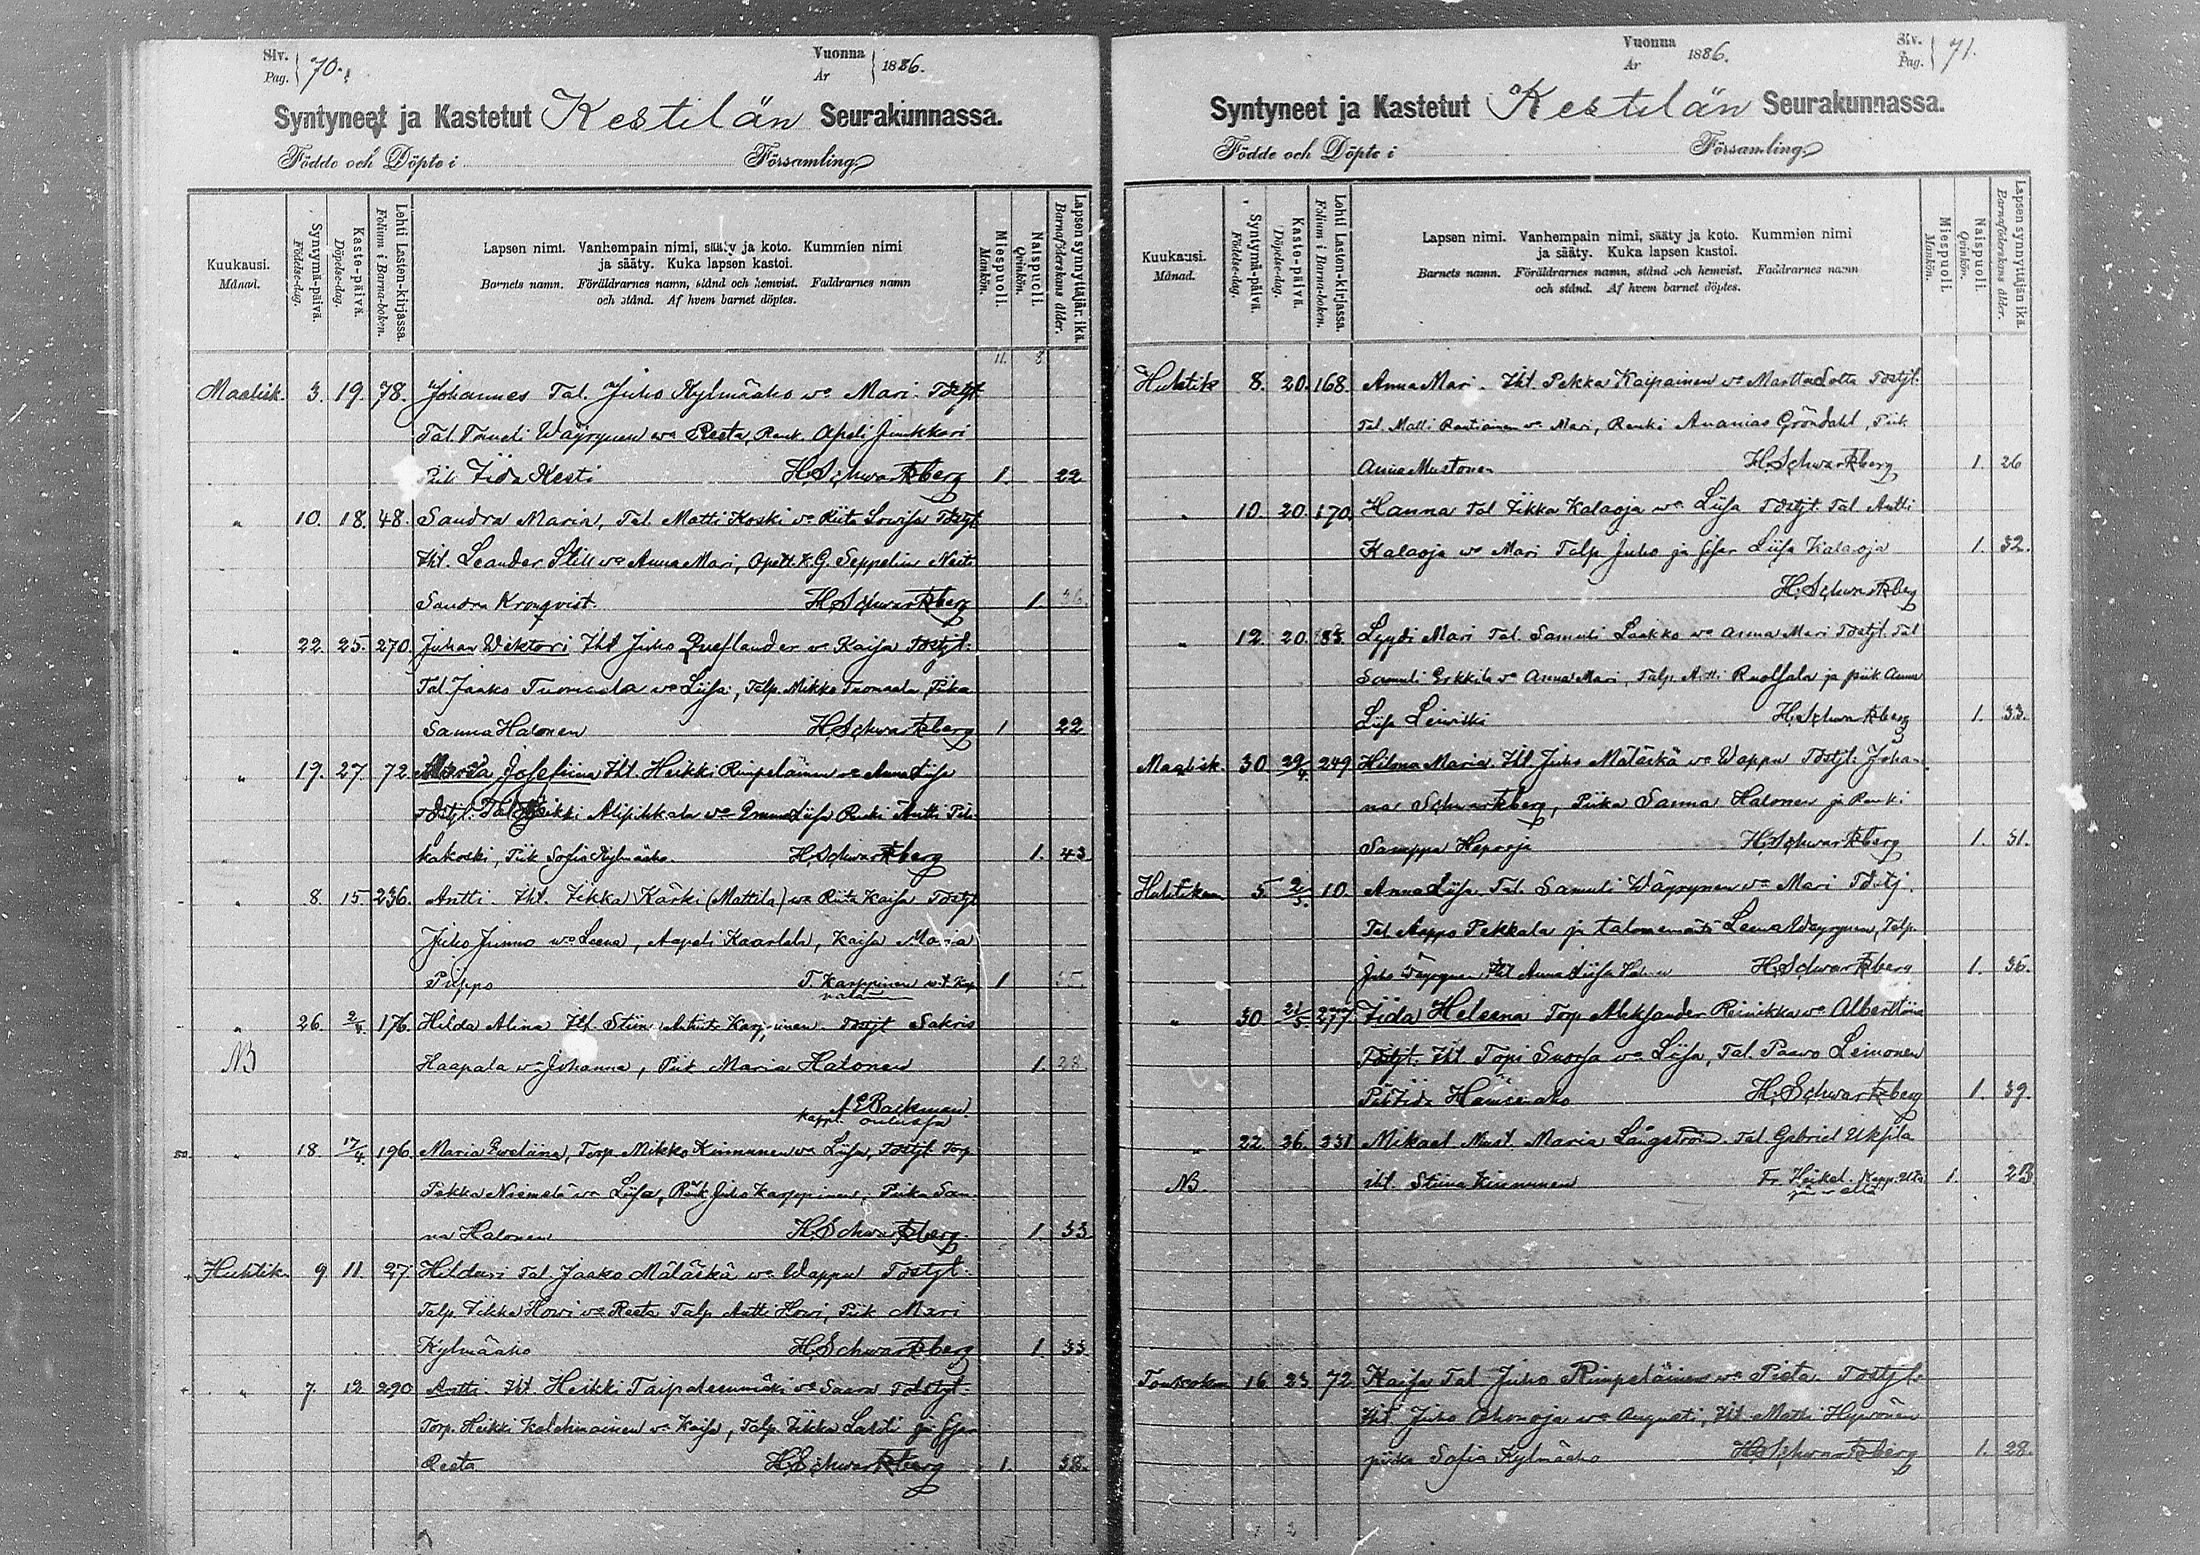 Siv. Pag. 70.
Vuonna År 1886.
Syntyneet ja Kastetut Kestilän Seurakunnassa.
Födde och Döpte i Församling.
Kuukausi. Månad.
Syntymä-päivä. Födelse-dag.
Kaste-päivä. Döpelse-dag.
Lehti Lasten-kirjassa. Folium i Barna-boken.
Lapsen nimi. Vanhempain nimi, sääty ja koto. Kummien nimi
ja sääty. Kuka lapsen kastoi.
Barnets namn. Föräldrarnes namn, stånd och hemvist. Faddrarnes namn
och stånd. Af hvem barnet döptes.
Miespuoli. Mankön.
Naispuoli. Qvinkön.
Lapsen synnyttäjän ikä. Barnaföderskans ålder.
11. 8
Maalisk. 3. 19. 78. Johannes Tal. Juho Kylmäaho wo Mari. Tdstjt
Tal. Taneli Wäyrynen wo Reeta, Renk. Apeli Junkkari
Piik Iida Kesti H. Schwartzberg 1. 22
" 10. 18. 48. Sandra Maria, Tal. Matti Koski wo Riita Lowisa Tdstjt
Itl. Leander Still wo Anna Mari, Opett. K. G. Seppelin Neiti
Sandra Kronqvist. H. Schwartzberg 1. 36.
" 22. 25. 270. Juhan Wiktori Itl Juho wo Kaisa Tdstjt.
Tal. Jaako Tuomala wo Liisa, Talp. Mikko Tuomala, Piika
Sanna Halonen H. Schwartzberg 1 22
" 19. 27. 72. Maria Josefiina Itl. Heikki Rimpeläinen wo Anna Liisa
Tdstjt. Tal. Heikki Alipihkala wo Emma Liisa Renki Antti Pih-
kakoski, Piik Sofia Kylmäaho. H. Schwartzberg 1. 43
" 8. 15 236. Antti. Itl. Iikka Kärki (Mattila) wo Riita Kaisa Tdstjt
Juho Junno wo Leena, Aapeli Kaarlela, Kaisa Maria
Piippo T. Karppinen w.t. Kap- 1 35.
" 26. 2/4 176. Hilda Alina Itl Stiina Karppinen Tdstjt Sakris
NB Haapala wo Johanna, Piik Maria Halonen 1. 28
A E Backman.
kappl. Oulussa
" 18 17/4. 196. Maria Eweliina, Torp. Mikko Kinnunen wo Liisa, Tdstjt. Torp
Pekka Niemelä wo Liisa, Renk Juho Karppinen, Piika San-
na Halonen H. Schwartzberg. 1. 33
Huhtik. 9 11. 27 Hilduri Tal Jaako Mäläskä wo Wappu Tdstjt.
Talp. Iikka Howi wo Reeta Talp Antti Howi, Piik Mari
Kylmäaho H. Schwartzberg 1. 33
" 7. 12 290 Antti Itl. Heikki Taipaleenmäki wo Saara Tdstjt.
Torp. Heikki Kolehmainen wo Kaisa, Talp. Iikka Lahti ja Sisar
Reeta H. Schwartzberg 1. 38.
Siv. Pag. 71.
Vuonna År 1886.
Syntyneet ja Kastetut Kestilän Seurakunnassa.
Födde och Döpte i Församling.
Kuukausi. Månad.
Syntymä-päivä. Födelse-dag.
Kaste-päivä. Döpelse-dag.
Lehti Lasten-kirjassa. Folium i Barna-boken.
Lapsen nimi. Vanhempain nimi, sääty ja koto. Kummien nimi
ja sääty. Kuka lapsen kastoi.
Barnets namn. Föräldrarnes namn, stånd och hemvist. Faddrarnes namn
och stånd. Af hvem barnet döptes.
Miespuoli. Mankön.
Naispuoli. Qvinkön.
Lapsen synnyttäjän ikä. Barnaföderskans ålder.
Huhtik 8. 20. 168. Anna Mari. Itl. Pekka Kaipainen wo Martta Lotta Tdstjt.
Tal. Matti Rautiainen wo Mari, Renki Ananias Gröndahl, Piik
Anna Mustonen H. Schwartzberg 1. 26
" 10. 20. 170. Hanna Tal Iikka Kalaoja wo Liisa Tdstjt. Tal Antti
Kalaoja wo Mari Talp. Juho ja sisar Liisa Kalaoja 1. 32.
H. Schwartzberg
" 12. 20. Lyydi Mari Tal. Samuli Laakko wo Anna Mari Tdstjt. Tal
Samuli Erkkilä wo Anna Mari, Talp. Antti Ruolsala ja piik Anna
Liisa Leiwiski H. Schwartzberg 1. 33.
Maalisk. 30 29/4 249 Hilma Maria Itl Juho Mäläskä wo Wappu Tdstjt. Johan-
na Schwartzberg, Piika Sanna Halonen ja Renki
Samppa Hepooja H. Schwartzberg 1. 31.
Huhtikuu 5 2/5. 10. Anna Liisa Tal. Samuli Wäyrynen wo Mari Tdstj.
Tal Aappo Pekkala ja talonemäntä Leena Wäyrynen, Talp.
Juho Wäyrynen Itl Anna Liisa H. Schwartzberg 1. 36.
" 30 21/5 277 Iida Heleena Torp Aleksander Reinikka wo Albertiina
Tdstjt. Itl. Topi Suorsa wo Liisa, Tal. Paavo Leinonen
Piik Iida H. Schwartzberg 1. 39.
" 22 26. 331 Mikael Nust. Maria Långström Tal. Gabriel Uksila
NB. itl. Stiina Kinnunen Fr. Heikel. Kapp. Uta- 1. 23
järwellä
Toukokuu 16 23 72 Kaisa Tal Juho Rimpeläinen wo Pieta Tdstjt.
Itl. Juho Ahonoja wo Augusti, Itl. Matti Hywönen
piika Sofia Kylmäaho H. Schwartzberg 1. 28.